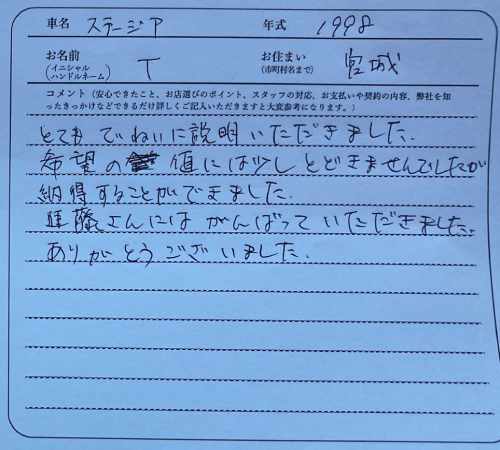 車名 ステージア 年式 1998
お名前 (イニシャル ハンドルネーム) T お住まい (市町村名まで) 宮城
コメント（安心できたこと、お店選びのポイント、スタッフの対応、お支払いや契約の内容、弊社を知
ったきっかけなどできるだけ詳しくご記入いただきますと大変参考になります。）
とてもていねいに説明いただきました.
希望の値には少しとどきませんでしたが
納得することができました.
藤さんにはがんばっていただきました.
ありがとうございました.